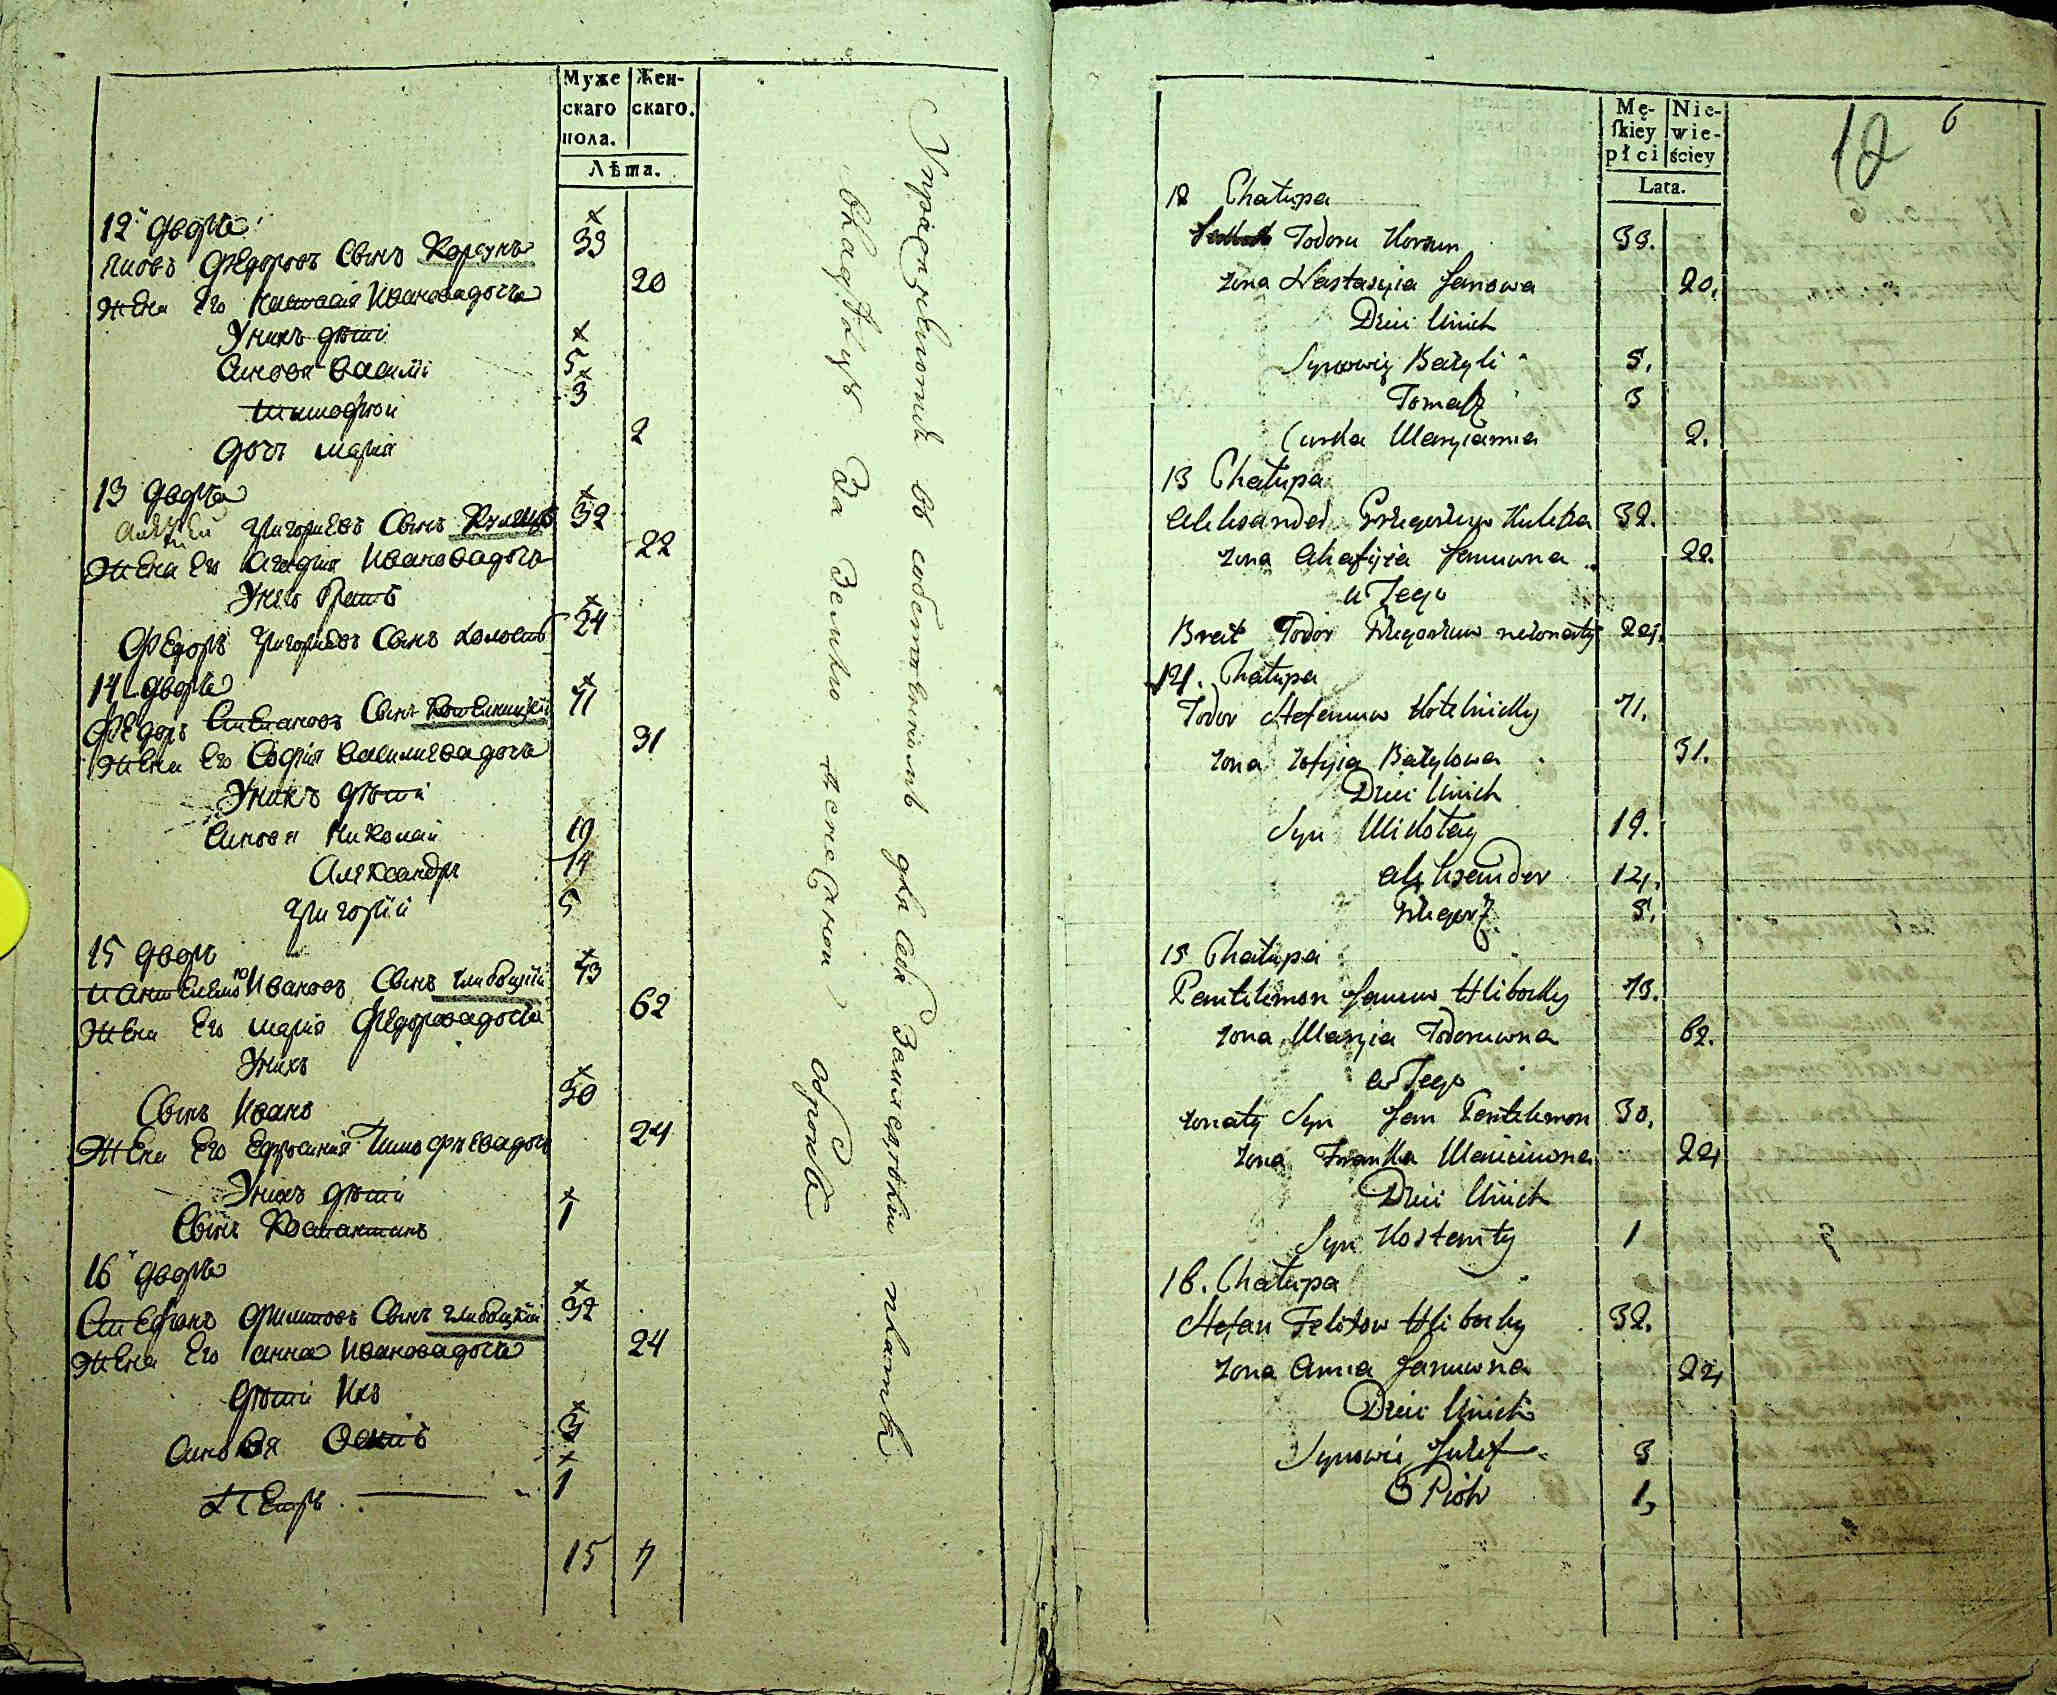 Муже
скаго
пола.
Жен-
скаго.
Лѣта.
12 дворъ
Яковъ Федоровъ Сынъ Корсунъ 33
Жена Его Настасія Ивановадочь 20
Унихъ дѣти
Синовя Василій 5
Тимофѣй 3
дочь марія 2
13 дворъ
Алѣксѣй Григориевъ Сынъ 32
Жена Его Агафія Ивановадочь 22
Унего братъ
Федоръ Григориевъ Сынъ холостъ 24
14 дворъ
Федоръ Степановъ Сынъ Котелницкій 71
Жена Его Софія Василиевадочь 31
Унихъ дѣти
Синовя Николай 19
Александръ 14
Григорій 5
15 дворъ
Пантелемонъ Ивановъ Сынъ глибоцкій 73
Жена Его марія Федоровадочь 62
Унихъ
Сынъ Иванъ 30
Жена Его Ефросиния Тимофѣевадочь 24
Унихъ дѣти
Сынъ Костантинъ 1
16 дворъ
Стефанъ Филиповъ Сынъ глибоцкій 32
Жена Его анна Ивановадочь 24
дѣти Ихъ
Синовя Осипъ 3
Петръ 1
15 7
въ собственномъ для себя платятъ
владѣлцу За Землю оброкъ
Mę-
skiey
płci
Nie-
wie-
ściey
Lata.
12 6
12 Chałupa
Todoru Korsun 33.
żona Nastasyia Janowa 20.
Dzieci Unich
Synowię Bazyli 5.
Tomasz 3
Curka Maryianna 2.
13 Chałupa
Aleksander Grzegorzuw Kulesza 32.
żona Ahafija Januwna 22.
u Tego
Brat Todor Grzegorzuw nieżonaty 24.
14. Chałupa
Todor Stefanuw Kotelnicky 71.
żona Zofyia Bazylowa 31.
Dzieci Unich
Syn Mikołay 19.
Aleksander 14.
Grzegorz 5.
15 Chałupa
Pantelimon Januw Hlibocky 73.
żona Maryia Todoruwna 62.
u Tego
żonaty Syn Jan Pantelimon 30.
żona Franka 24
Dzieci Unich
Syn Kostenty 1
16. Chałupa
Stefan Feliksow Hlibocky 32.
żona Anna Januwna 24
Dzieci Unich
Synowie Juzef 3
Piotr 1,